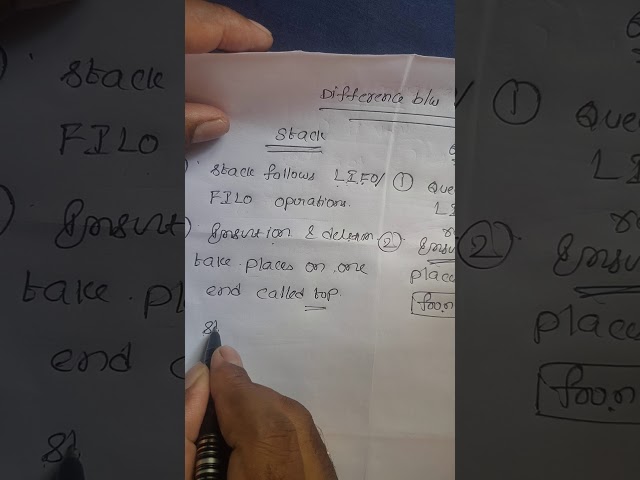 Difference b/w
Stack
stack follows LIFO/
FILO operations.
Insertion & deletion
take places on one
end called top.
①
Que
LI
②
Insu
place